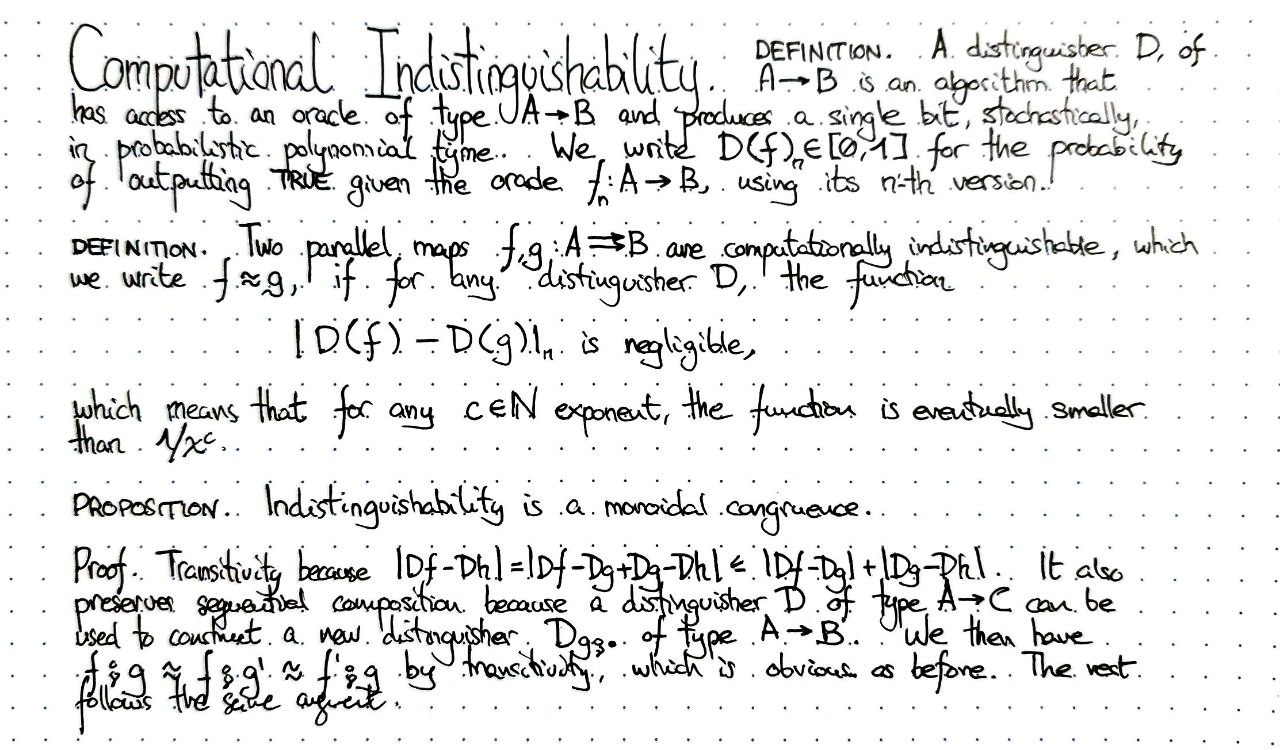 Computational Indistinguishability. DEFINITION. A distinguisher D, of
A→B is an algorithm that
has access to an oracle of type A→B and produces a single bit, stochastically,
in probabilistic polynomial tyme. We write D(f)ₙ∈[0,1] for the probability
of outputting TRUE given the oracle fₙ:A→B, using its n-th version.
DEFINITION. Two parallel maps f,g:A⇉B are computationally indistinguishable, which
we write f≈g, if for any distinguisher D, the function
|D(f) − D(g)|ₙ is negligible,
which means that for any c∈ℕ exponent, the function is eventually smaller
than 1/xᶜ.
PROPOSITION. Indistinguishability is a monoidal congruence.
Proof. Transitivity because |Df-Dh|=|Df-Dg+Dg-Dh| ≤ |Df-Dg|+|Dg-Dh|. It also
preserves sequential composition because a distinguisher D of type A→C can be
used to construct a new distinguisher D of type A→B. We then have
f⨾g ≈ f⨾g' ≈ f'⨾g by transitivity, which is obvious as before. The rest
follows the same